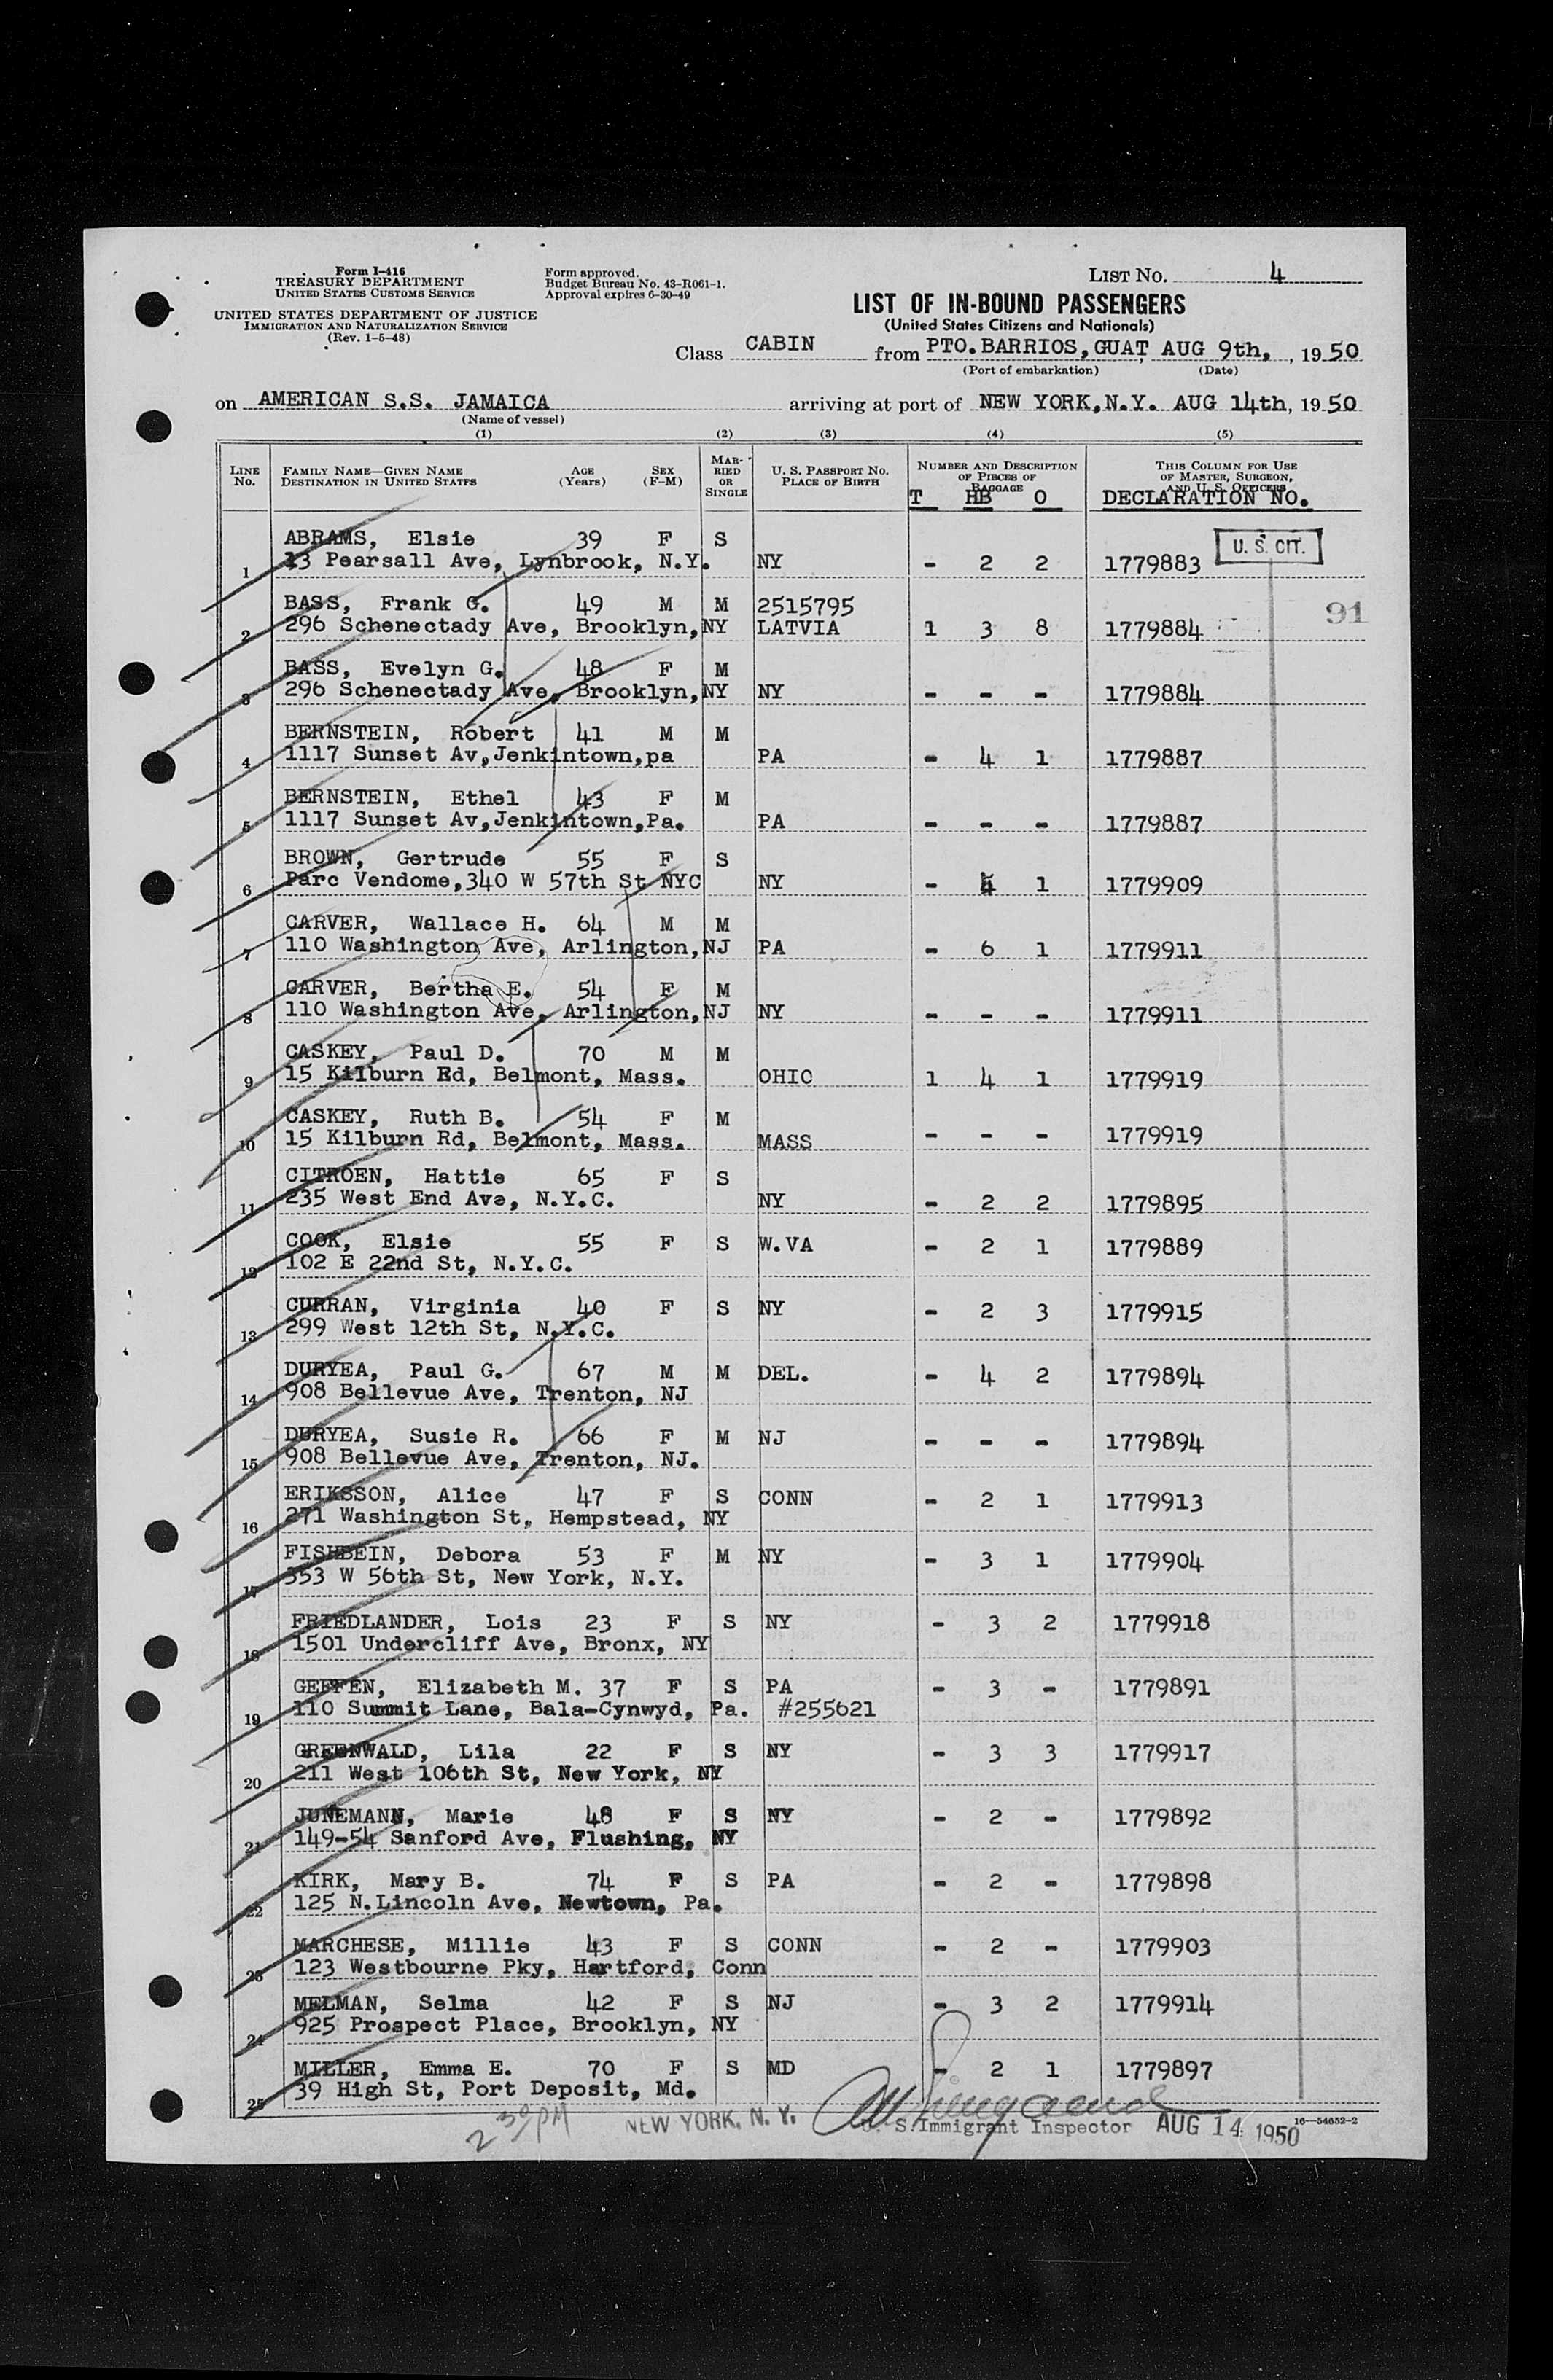 Form I-416
TREASURY DEPARTMENT
UNITED STATES CUSTOMS SERVICE
UNITED STATES DEPARTMENT OF JUSTICE
IMMIGRATION AND NATURALIZATION SERVICE
(Rev. 1-5-48)
Form approved.
Budget Bureau No. 43-R061-1.
Approval expires 6-30-49
LIST NO. 4
LIST OF IN-BOUND PASSENGERS
(United States Citizens and Nationals)
Class CABIN from PTO.BARRIOS,GUAT, AUG 9th, , 19 50
(Port of embarkation) (Date)
on AMERICAN S.S. JAMAICA arriving at port of NEW YORK,N.Y. AUG 14th, 19 50
(Name of vessel)
(1) (2) (3) (4) (5)
LINE NO. FAMILY NAME—GIVEN NAME DESTINATION IN UNITED STATES AGE (Years) SEX (F-M) MARRIED OR SINGLE U. S. PASSPORT NO. PLACE OF BIRTH NUMBER AND DESCRIPTION OF PIECES OF BAGGAGE THIS COLUMN FOR USE OF MASTER, SURGEON, AND U. S. OFFICERS
T HB O DECLARATION NO.
U. S. CIT.
91
ABRAMS, Elsie 39 F S
1 13 Pearsall Ave, Lynbrook, N.Y. NY - 2 2 1779883
BASS, Frank G. 49 M M 2515795
2 296 Schenectady Ave, Brooklyn,NY LATVIA 1 3 8 1779884
BASS, Evelyn G. 48 F M
3 296 Schenectady Ave, Brooklyn,NY NY - - - 1779884
BERNSTEIN, Robert 41 M M
4 1117 Sunset Av,Jenkintown,pa PA - 4 1 1779887
BERNSTEIN, Ethel 43 F M
5 1117 Sunset Av,Jenkintown,Pa. PA - - - 1779887
BROWN, Gertrude 55 F S
6 Parc Vendome,340 W 57th St NYC NY - 1 1779909
CARVER, Wallace H. 64 M M
7 110 Washington Ave, Arlington,NJ PA - 6 1 1779911
CARVER, Bertha E. 54 F M
8 110 Washington Ave, Arlington,NJ NY - - - 1779911
CASKEY, Paul D. 70 M M
9 15 Kilburn Rd, Belmont, Mass. OHIO 1 4 1 1779919
CASKEY, Ruth B. 54 F M
10 15 Kilburn Rd, Belmont, Mass. MASS - - - 1779919
CITROEN, Hattie 65 F S
11 235 West End Ave, N.Y.C. NY - 2 2 1779895
COOK, Elsie 55 F S W.VA - 2 1 1779889
12 102 E 22nd St, N.Y.C.
CURRAN, Virginia 40 F S NY - 2 3 1779915
13 299 West 12th St, N.Y.C.
DURYEA, Paul G. 67 M M DEL. - 4 2 1779894
14 908 Bellevue Ave, Trenton, NJ
DURYEA, Susie R. 66 F M NJ - - - 1779894
15 908 Bellevue Ave, Trenton, NJ.
ERIKSSON, Alice 47 F S CONN - 2 1 1779913
16 271 Washington St, Hempstead, NY
FISHBEIN, Debora 53 F M NY - 3 1 1779904
17 353 W 56th St, New York, N.Y.
FRIEDLANDER, Lois 23 F S NY - 3 2 1779918
18 1501 Undercliff Ave, Bronx, NY
GEFFEN, Elizabeth M. 37 F S PA - 3 - 1779891
19 110 Summit Lane, Bala-Cynwyd, Pa. #255621
GREENWALD, Lila 22 F S NY - 3 3 1779917
20 211 West 106th St, New York, NY
JUNEMANN, Marie 48 F S NY - 2 - 1779892
21 149-54 Sanford Ave, Flushing, NY
KIRK, Mary B. 74 F S PA - 2 - 1779898
22 125 N.Lincoln Ave, Newtown, Pa.
MARCHESE, Millie 43 F S CONN - 2 - 1779903
23 123 Westbourne Pky, Hartford, Conn
MELMAN, Selma 42 F S NJ - 3 2 1779914
24 925 Prospect Place, Brooklyn, NY
MILLER, Emma E. 70 F S MD - 2 1 1779897
25 39 High St, Port Deposit, Md.
2 30 PM NEW YORK, N. Y. S. Immigrant Inspector AUG 14 1950 16—54652-2